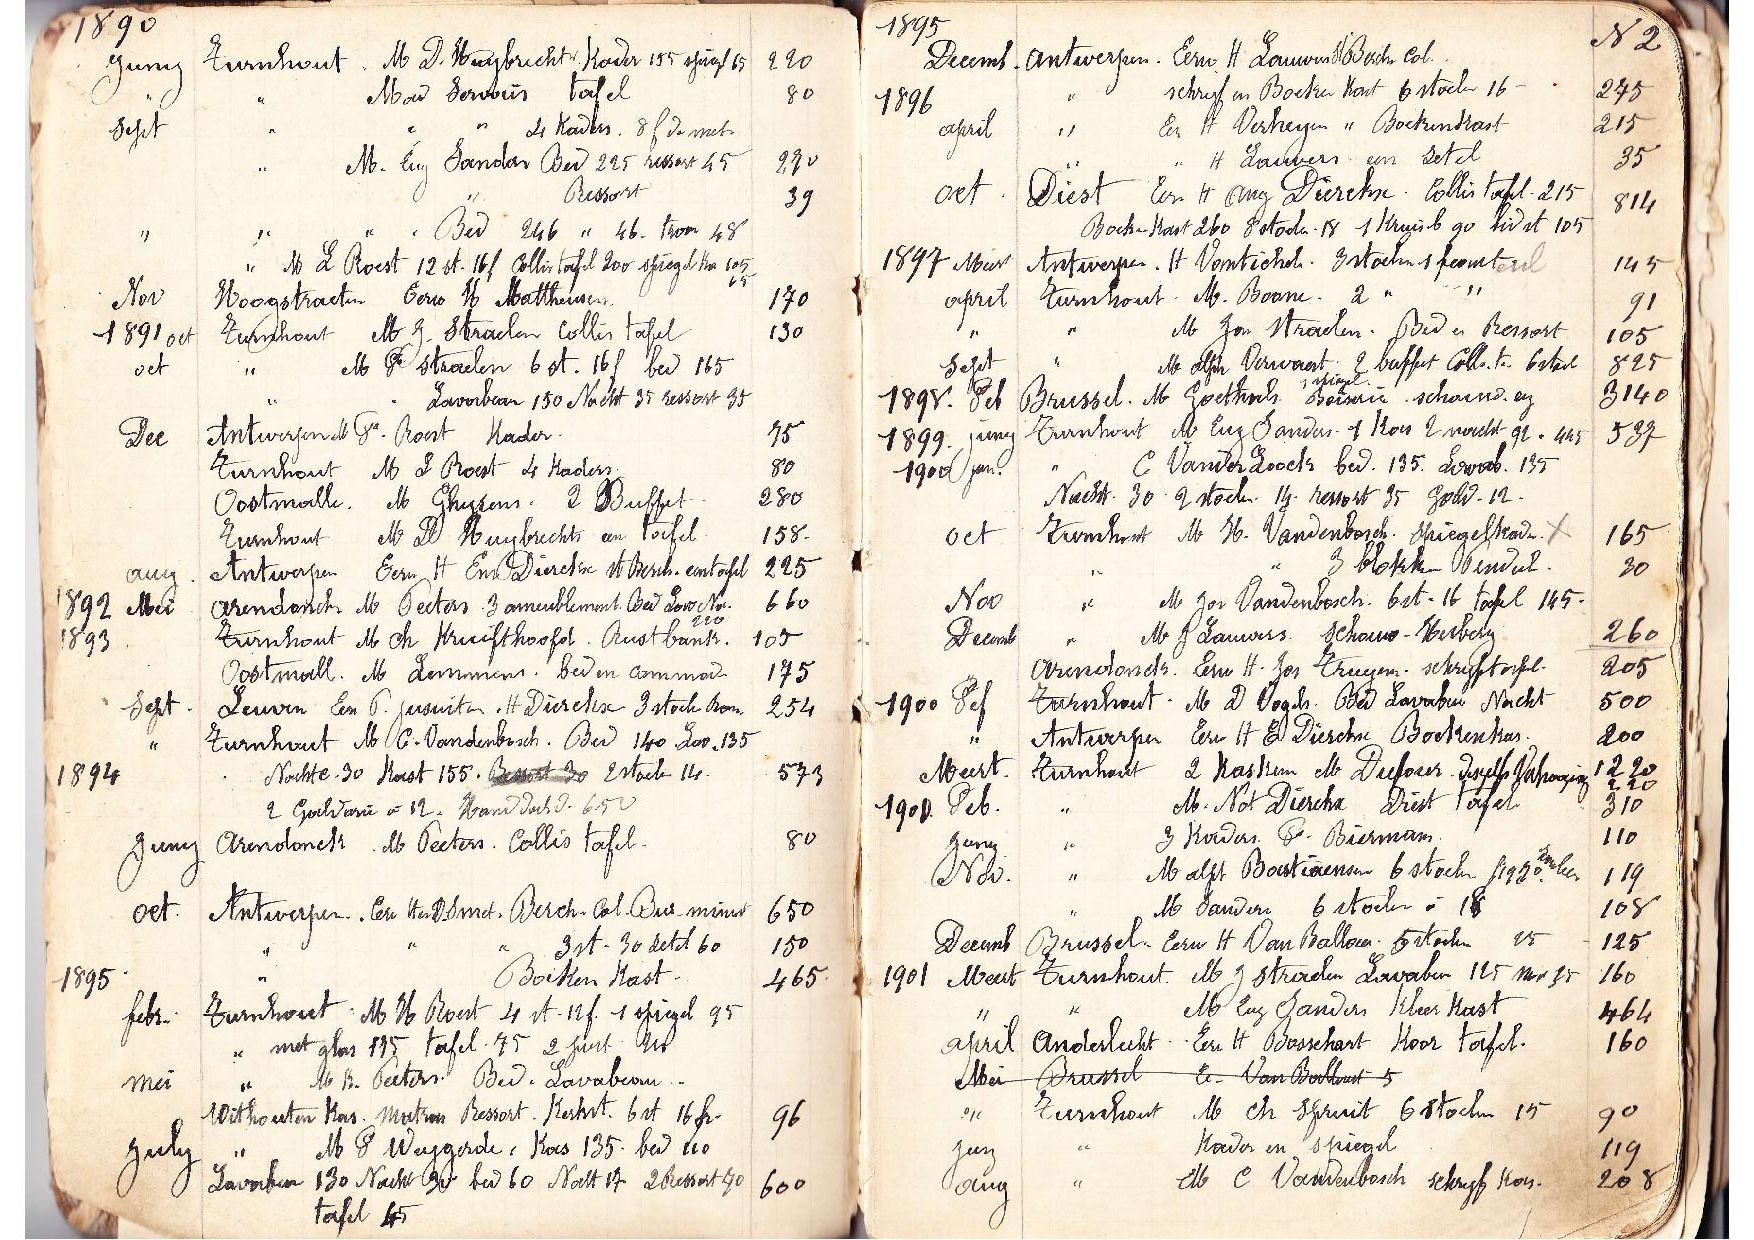 1890
Juny Turnhout . M D. Huybrechts. Kader 155 spiegl 65 220
" " Mad Servais tafel 80
Sept " " " 4 Kaders. 8 f de met
" M. Eug Sanders Bed 225 ressort 45 270
" Ressort 39
" " " " Bed 246 " 46. troon 48
" M L Roest 12 st. 16 f Collis tafel 200 spiegel Kas 105
65
Nov Hoogstraeten Eerw H Mattheusen 170
1891 oct Turnhout M J. Straelen Collis tafel 130
oct " M straelen 6 st. 16 f bed 165
" " Lavabeau 150 Nacht 35 ressort 35
Dec Antwerpen M Roest Kader. 75
Turnhout M L Roest 4 Kaders. 80
Oostmalle. M Gheysens. 2 Buffet 280
Turnhout M D Huybrechts een tafel. 158.
aug. Antwerpen Eerw H Em Dierckx st Berch. eentafel 225
1892 Mei Arendonck M Peeters. 3 ameublement. Bed Lav Na. 660
220
1893 Turnhout M Ch Kruifthoofd. Rustbank. 105
Oostmall. M Lemmens. bed en commode 175
Sept. Leuven Eer P. jesuiten. H Dierckx 3 stoele 254
" Turnhout M C. Vandenbosch. Bed 140 Lav. 135
1894 Nachte. 30 Kast 155. Ressort 30 2 stoele 14. 573
2 à 12. Handdoekd. 6.50
Juny Arendonck . M Peeters. Collis tafel. 80
oct. Antwerpen. Eerw H D Smet. Berch. Col. Bur. minis 650
" " " 3 st. 30 zetel 60 150
1895 " Boeken Kast. 465
febr. Turnhout. M H Roest 4 st. 12 f. 1 spiegel 95
" met glas 195 tafel. 75 2
mei " M R. Peeters. Bed. Lavabeau ..
Withouten Kas. matras Ressort. Kerkst. 6 st 16 fr. 96
July " M P Weygerde. Kas 135. bed 110
Lavabeau 130 Nacht 30 bed 60 Nacht 17 2 Ressort 70 600
tafel 45
1895 N 2
Decemb. Antwerpen. Eerw H Lauwers St Berch Col.
1896 " schryf en Boeken Kast 6 stoelen 16 - 275
april " Eer H Verheyen " Boekenkast 215
" " H Lauwers een Zetel 35
oct. Diest Eer H Aug Dierckx. Collis tafel. 215 814
Boeken Kast 260 8 stoelen. 18 1 Kruisb 90 bidst 105
1897 Meert Antwerpen. H Vantichelen. 3 stoelen 1 145
april Turnhout. M. Boone. 2 " " 91
" " M Jos Straelen. Bed en Ressort 105
Sept " M alph Verwaest. 2 buffet Coll. ta. 6 stoel 825
spiegel
1898. Feb Brussel. M Goethals. Boiserie. schouw. 3140
1899. juny Turnhout M Eug Sanders. 1 Kas 2 nacht 92. 445 537
1900 jan. " C Vander Loock bed. 135. Lavab. 135
Nacht. 30. 2 stoelen 14. ressort 35 12.
oct Turnhout M H. Vandenbosch. spiegelkader. X 165
" " 3 blokken Pendul. 30
Nov " M Jos Vandenbosch. 6 st. 16 tafel 145.
Decemb " M J Lauwers. Schouw - Herberg 260
Arendonck. Eerw H. Jos Truyens. schryftafel. 205
1900 Fef Turnhout. M D Vogels. Bed Lavabeau Nacht 500
" Antwerpen Eerw H E Dierckx Boekenkas. 200
Meert. Turnhout 2 Kasken M Dufour. 1220
220
1900. Feb. " M. Not Dierckx Diest tafel 310
Juny " 3 Kaders. Biermans. 110
Nov. " M alph Bastiaensen 6 stoelen 119
" M Sanders 6 stoelen à 18 108
Decemb Brussel. Eerw H Van Balloer. 5 stoelen 25 125
1901 Meert Turnhout. M J straelen Lavabeau 125 35 160
" " M Eug Sanders Kleer Kast 464
april Anderlecht. Eerw H Bosschart Koor tafel. 160
Mei Brussel E. Van 5
" Turnhout M Ch Spruit 6 stoelen 15 90
juny " Kader en spiegel 119
aug " M C Vandenbosch schryf Kas. 208